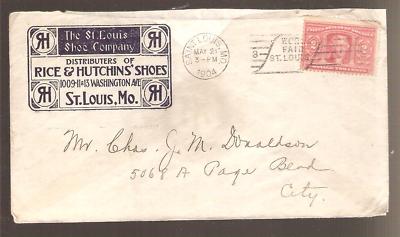 The St. Louis
Shoe Company
RH RH
DISTRIBUTERS OF
RICE & HUTCHINS' SHOES
1009-11 & 13 WASHINGTON AVE
ST. LOUIS, MO.
RH RH
SAINT LOUIS, MO.
MAY 21
3-PM
1904
WORLD'S
FAIR
ST. LOUIS
2 2
Mr. Chas. G. M. Donaldson
5068 A Page Bead
City.